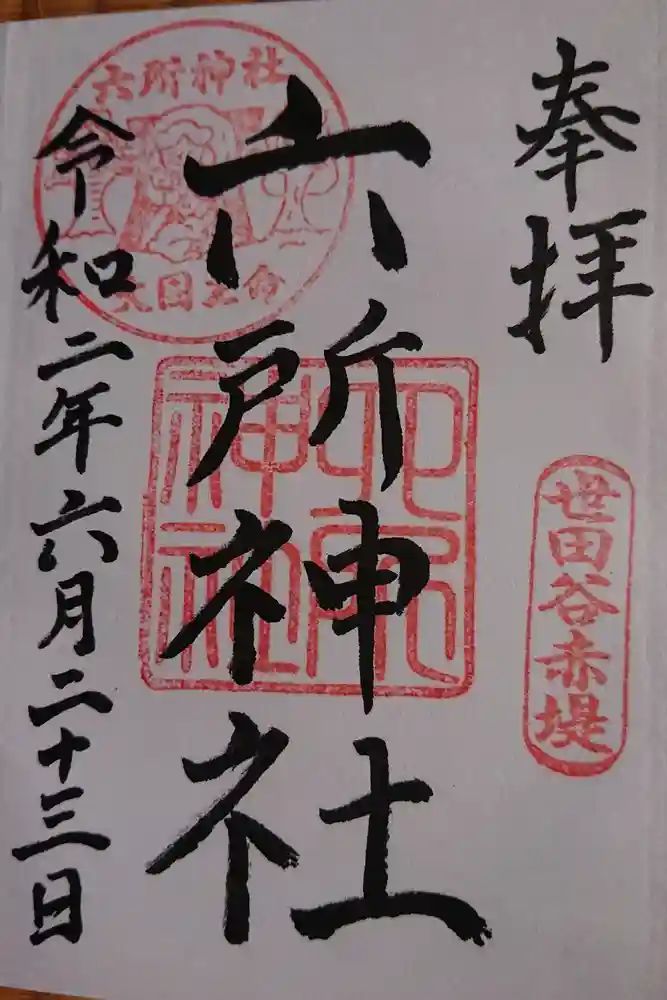 奉拝
世田谷赤堤
六所神社
六所神社
大国主命
令和二年六月二十三日